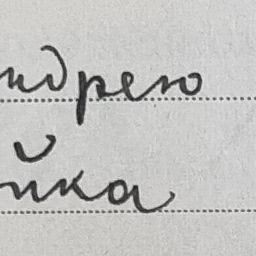 ндрею
йка